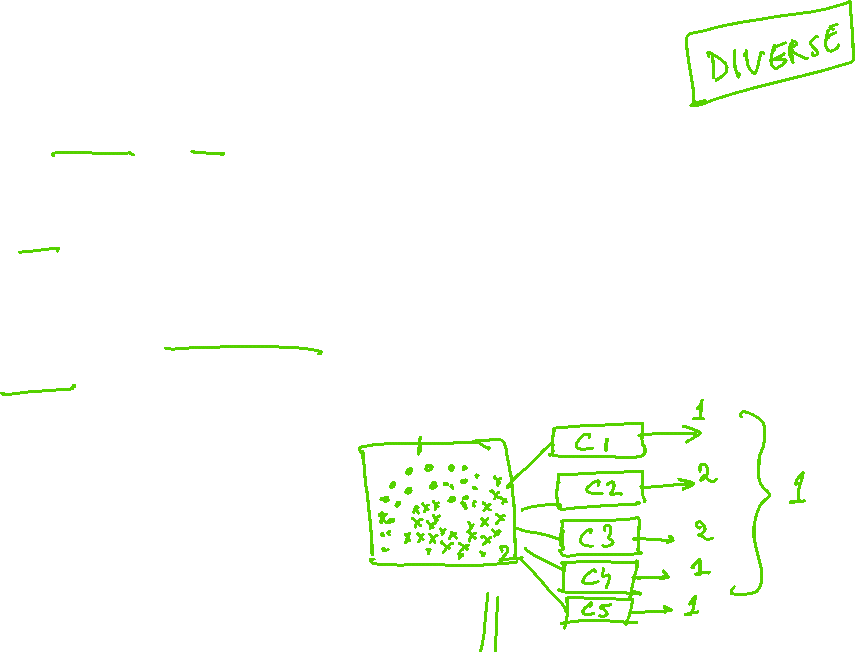 DIVERSE
C1 1
C2 2
C3 2
1
C4 1
C5 1
2